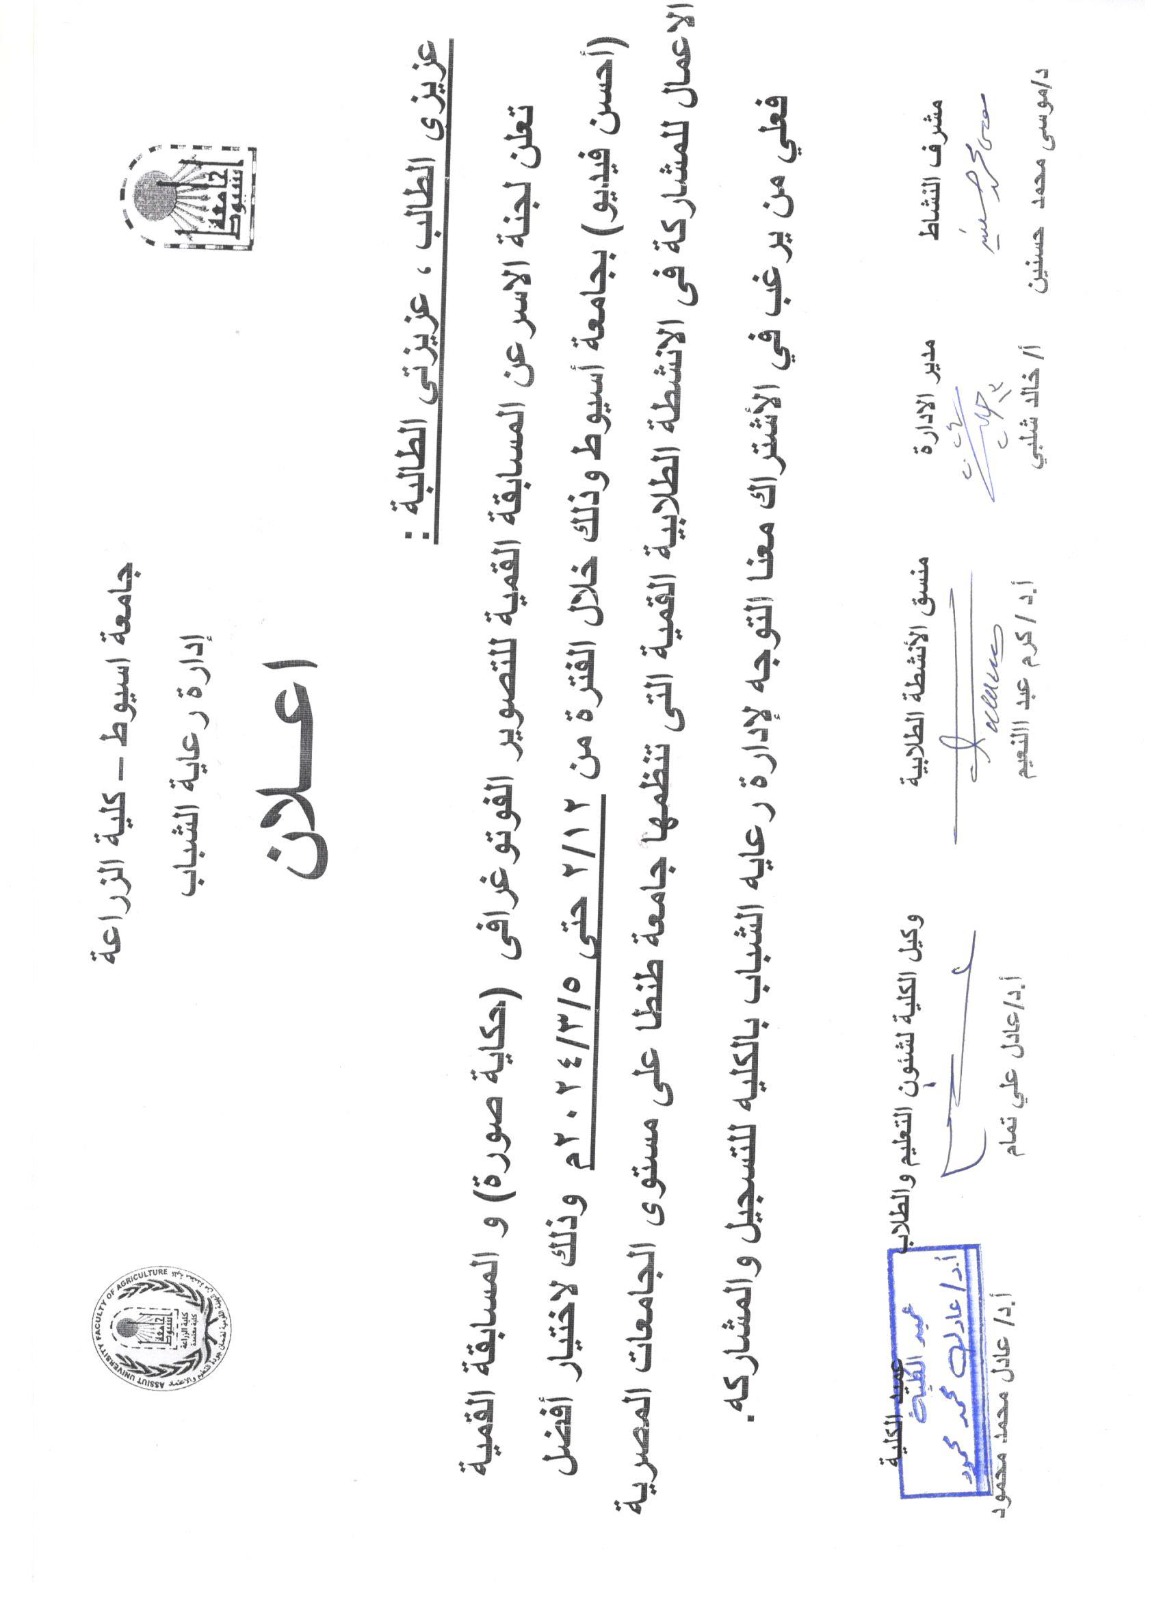 جامعة اسيوط – كلية الزراعة
إدارة رعاية الشباب
جامعة
اسيوط
ASSIUT UNIVERSITY FACULTY OF AGRICULTURE
اعـــلان
عزيزى الطالب ، عزيزتى الطالبة :
تعلن لجنة الاسر عن المسابقة القمية للتصوير الفوتوغرافى (حكاية صورة) و المسابقة القمية
(أحسن فيديو) بجامعة أسيوط وذلك خلال الفترة من ٢/١٢ حتى ٢٠٢٤/٣/٥م وذلك لاختيار أفضل
الاعمال للمشاركة فى الانشطة الطلابية القمية التى تنظمها جامعة طنطا على مستوى الجامعات المصرية
فعلي من يرغب في الأشتراك معنا التوجه لإدارة رعايه الشباب بالكليه للتسجيل والمشاركه.
مشرف النشاط
مدير الادارة
منسق الأنشطة الطلابية
وكيل الكلية لشئون التعليم والطلاب
عميد الكلية
عميد الكلية
أ.د/ عادل محمد محمود
د/موسى محمد حسنين
أ/ خالد شلبي
أ.د / كرم عبد االنعيم
أ.د/عادل علي تمام
أ.د/ عادل محمد محمود